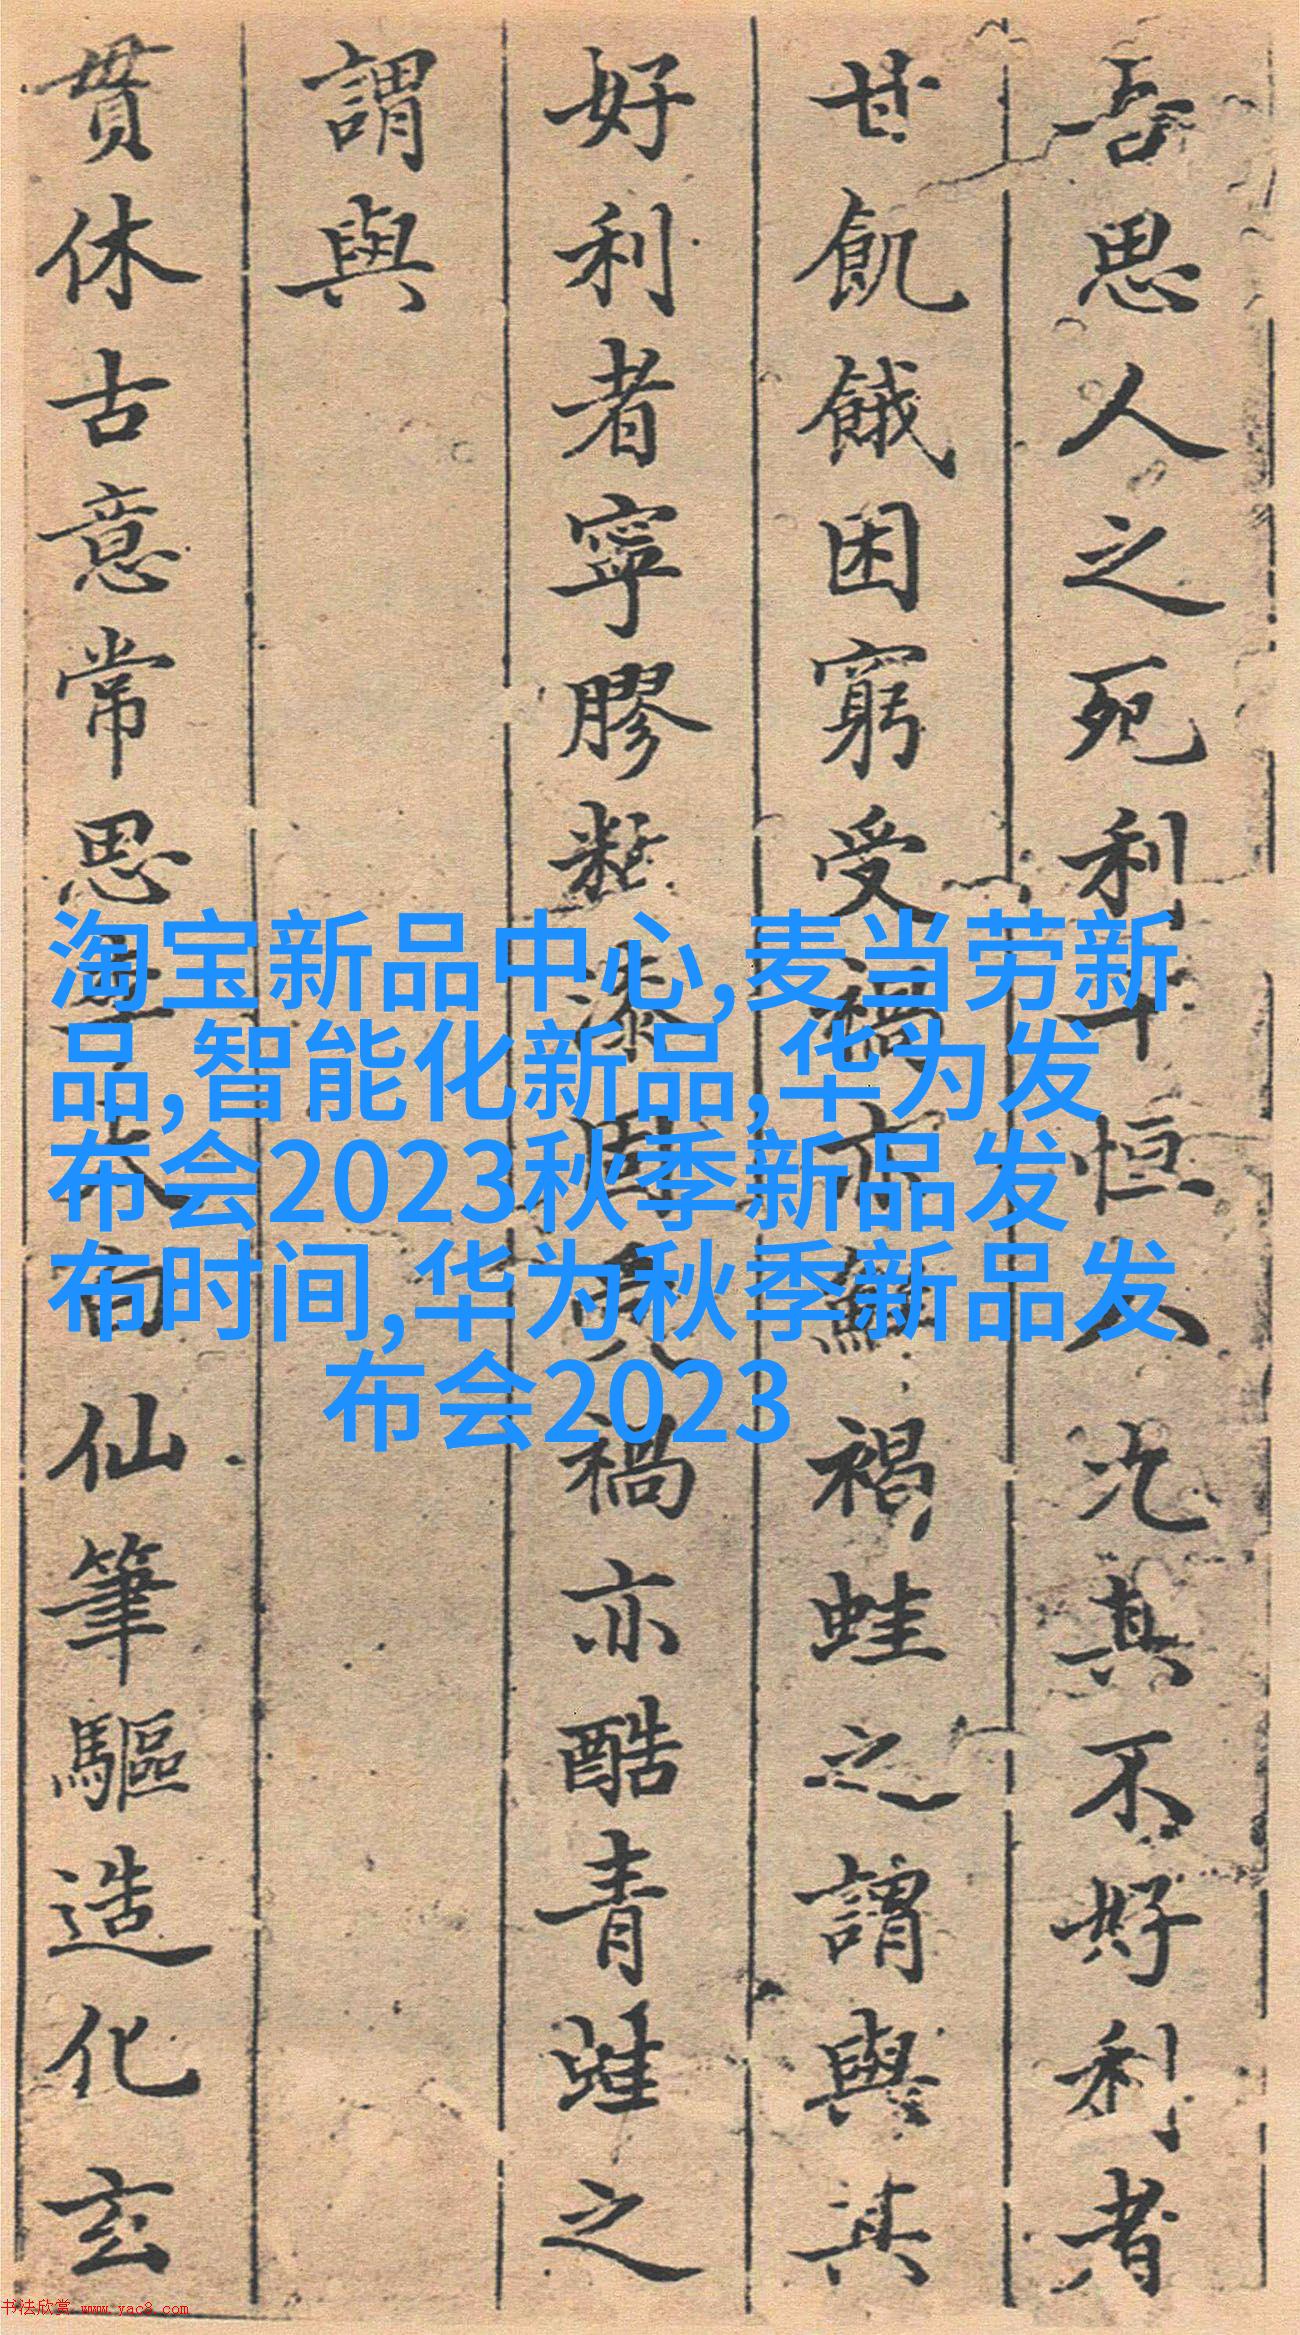 吾思人之死利十恒八九其不好利者
甘飢餓困窮受禍亦鮮禍蛙之謂與其
好利者寧膠黏漆固見禍亦酷青蛙之
謂與
貫休古意常思李太白仙筆驅造化玄
淘宝新品中心,麦当劳新
品,智能化新品,华为发
布会2023秋季新品发
布时间,华为秋季新品发
布会2023
书法欣赏 www.yac8.com